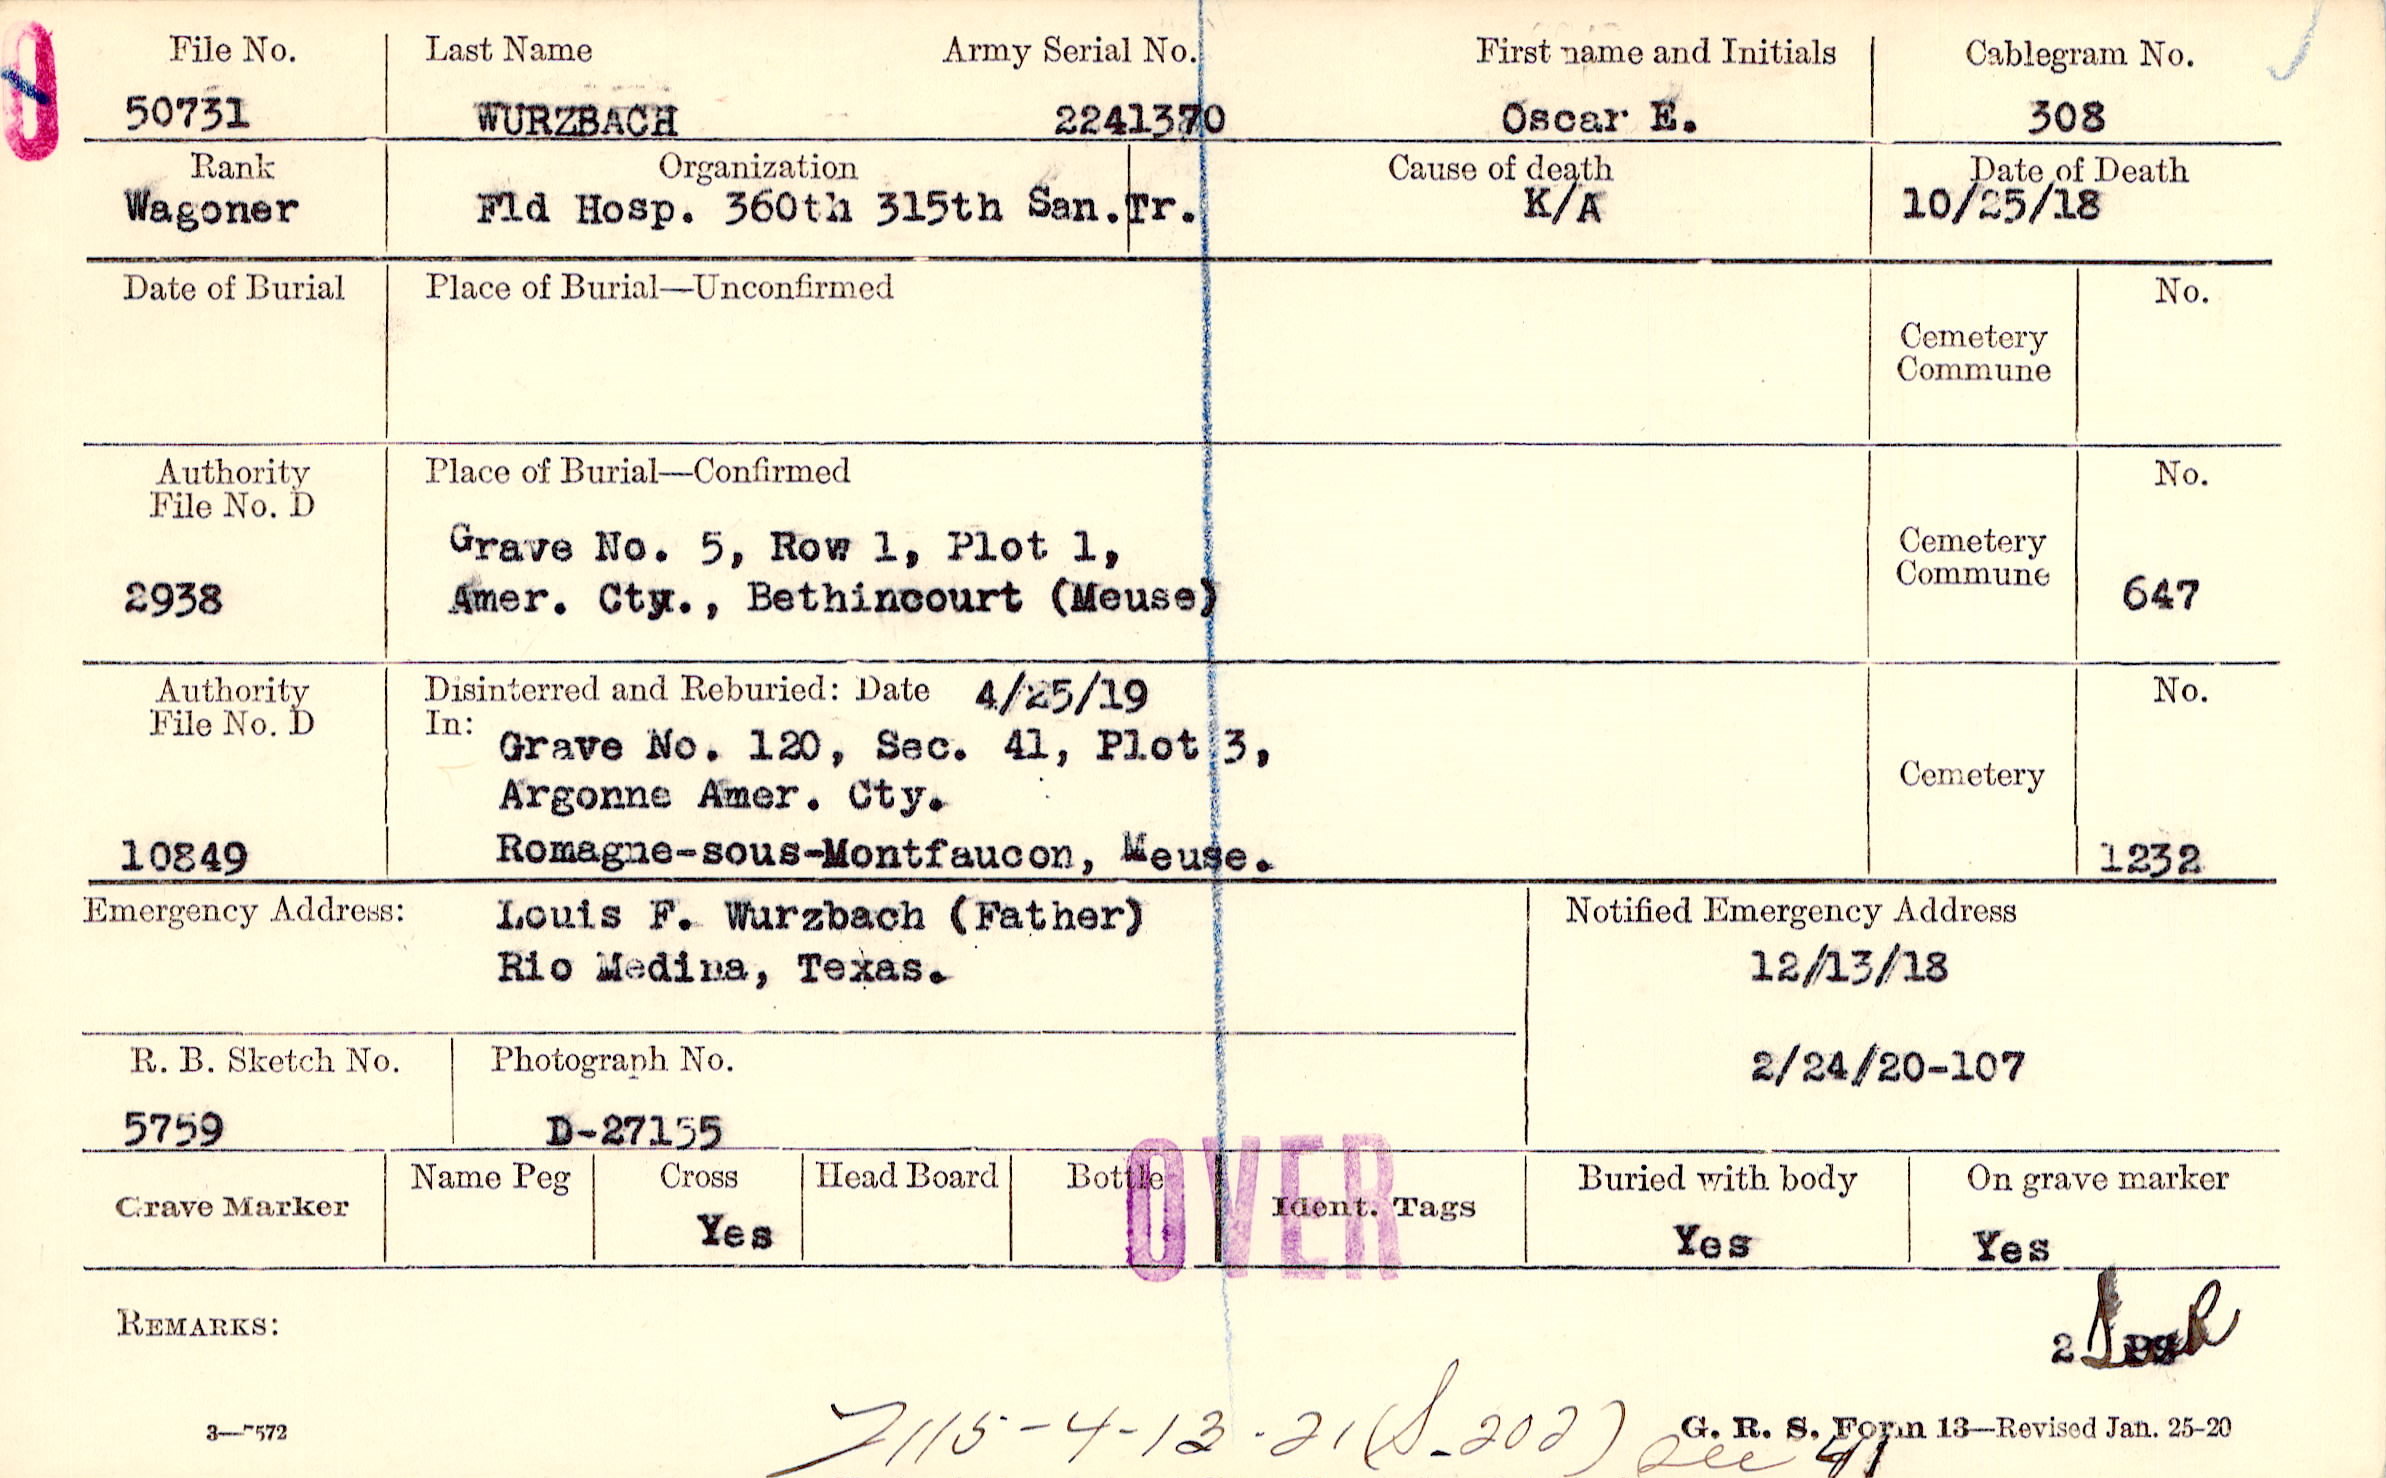 File No. Last Name Army Serial No. First name and Initials Cablegram No.
50731 WURZBACH 2241370 Oscar E. 308
Rank Organization Cause of death Date of Death
Wagoner Fld Hosp. 360th 315th San.Tr. K/A 10/25/18
Date of Burial Place of Burial—Unconfirmed No.
Cemetery
Commune
Authority Place of Burial—Confirmed No.
File No. D
Grave No. 5, Row 1, Plot 1, Cemetery
Commune
2938 Amer. Cty., Bethincourt (Meuse) 647
Authority Disinterred and Reburied: Date 4/25/19 No.
File No. D In:
Grave No. 120, Sec. 41, Plot 3,
Argonne Amer. Cty. Cemetery
10849 Romagne-sous-Montfaucon, Meuse. 1232
Emergency Address: Louis F. Wurzbach (Father) Notified Emergency Address
Rio Medina, Texas. 12/13/18
R. B. Sketch No. Photograph No. 2/24/20-107
5759 D-27155
OVER
Grave Marker Name Peg Cross Head Board Bottle Ident. Tags Buried with body On grave marker
Yes Yes Yes
REMARKS:
2
7115-4-13-21 (S-202) See 41
3—7572 G. R. S. Form 13—Revised Jan. 25-20